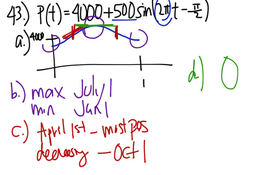 43.) P(t) = 4000 + 500 sin(2πt - π/2)
a.) 4000
1
b.) max July 1
min Jan 1
c.) April 1st - most pos
decreasing - Oct 1
d) 0